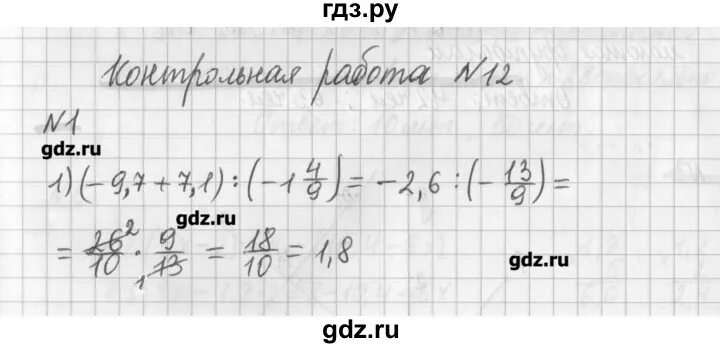 гдз.ру
Контрольная работа №12
№1
gdz.ru
1) (-9,7 + 7,1) : (-1 4/9) = -2,6 : (-13/9) =
gdz.ru
= 26 2/10 · 9/13 1 = 18/10 = 1,8
gdz.ru
gdz.ru